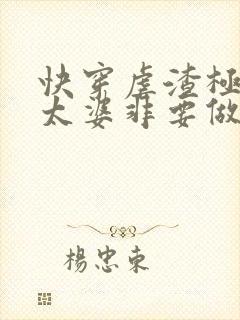 快穿虐渣極
太婆非要做
楊忠東